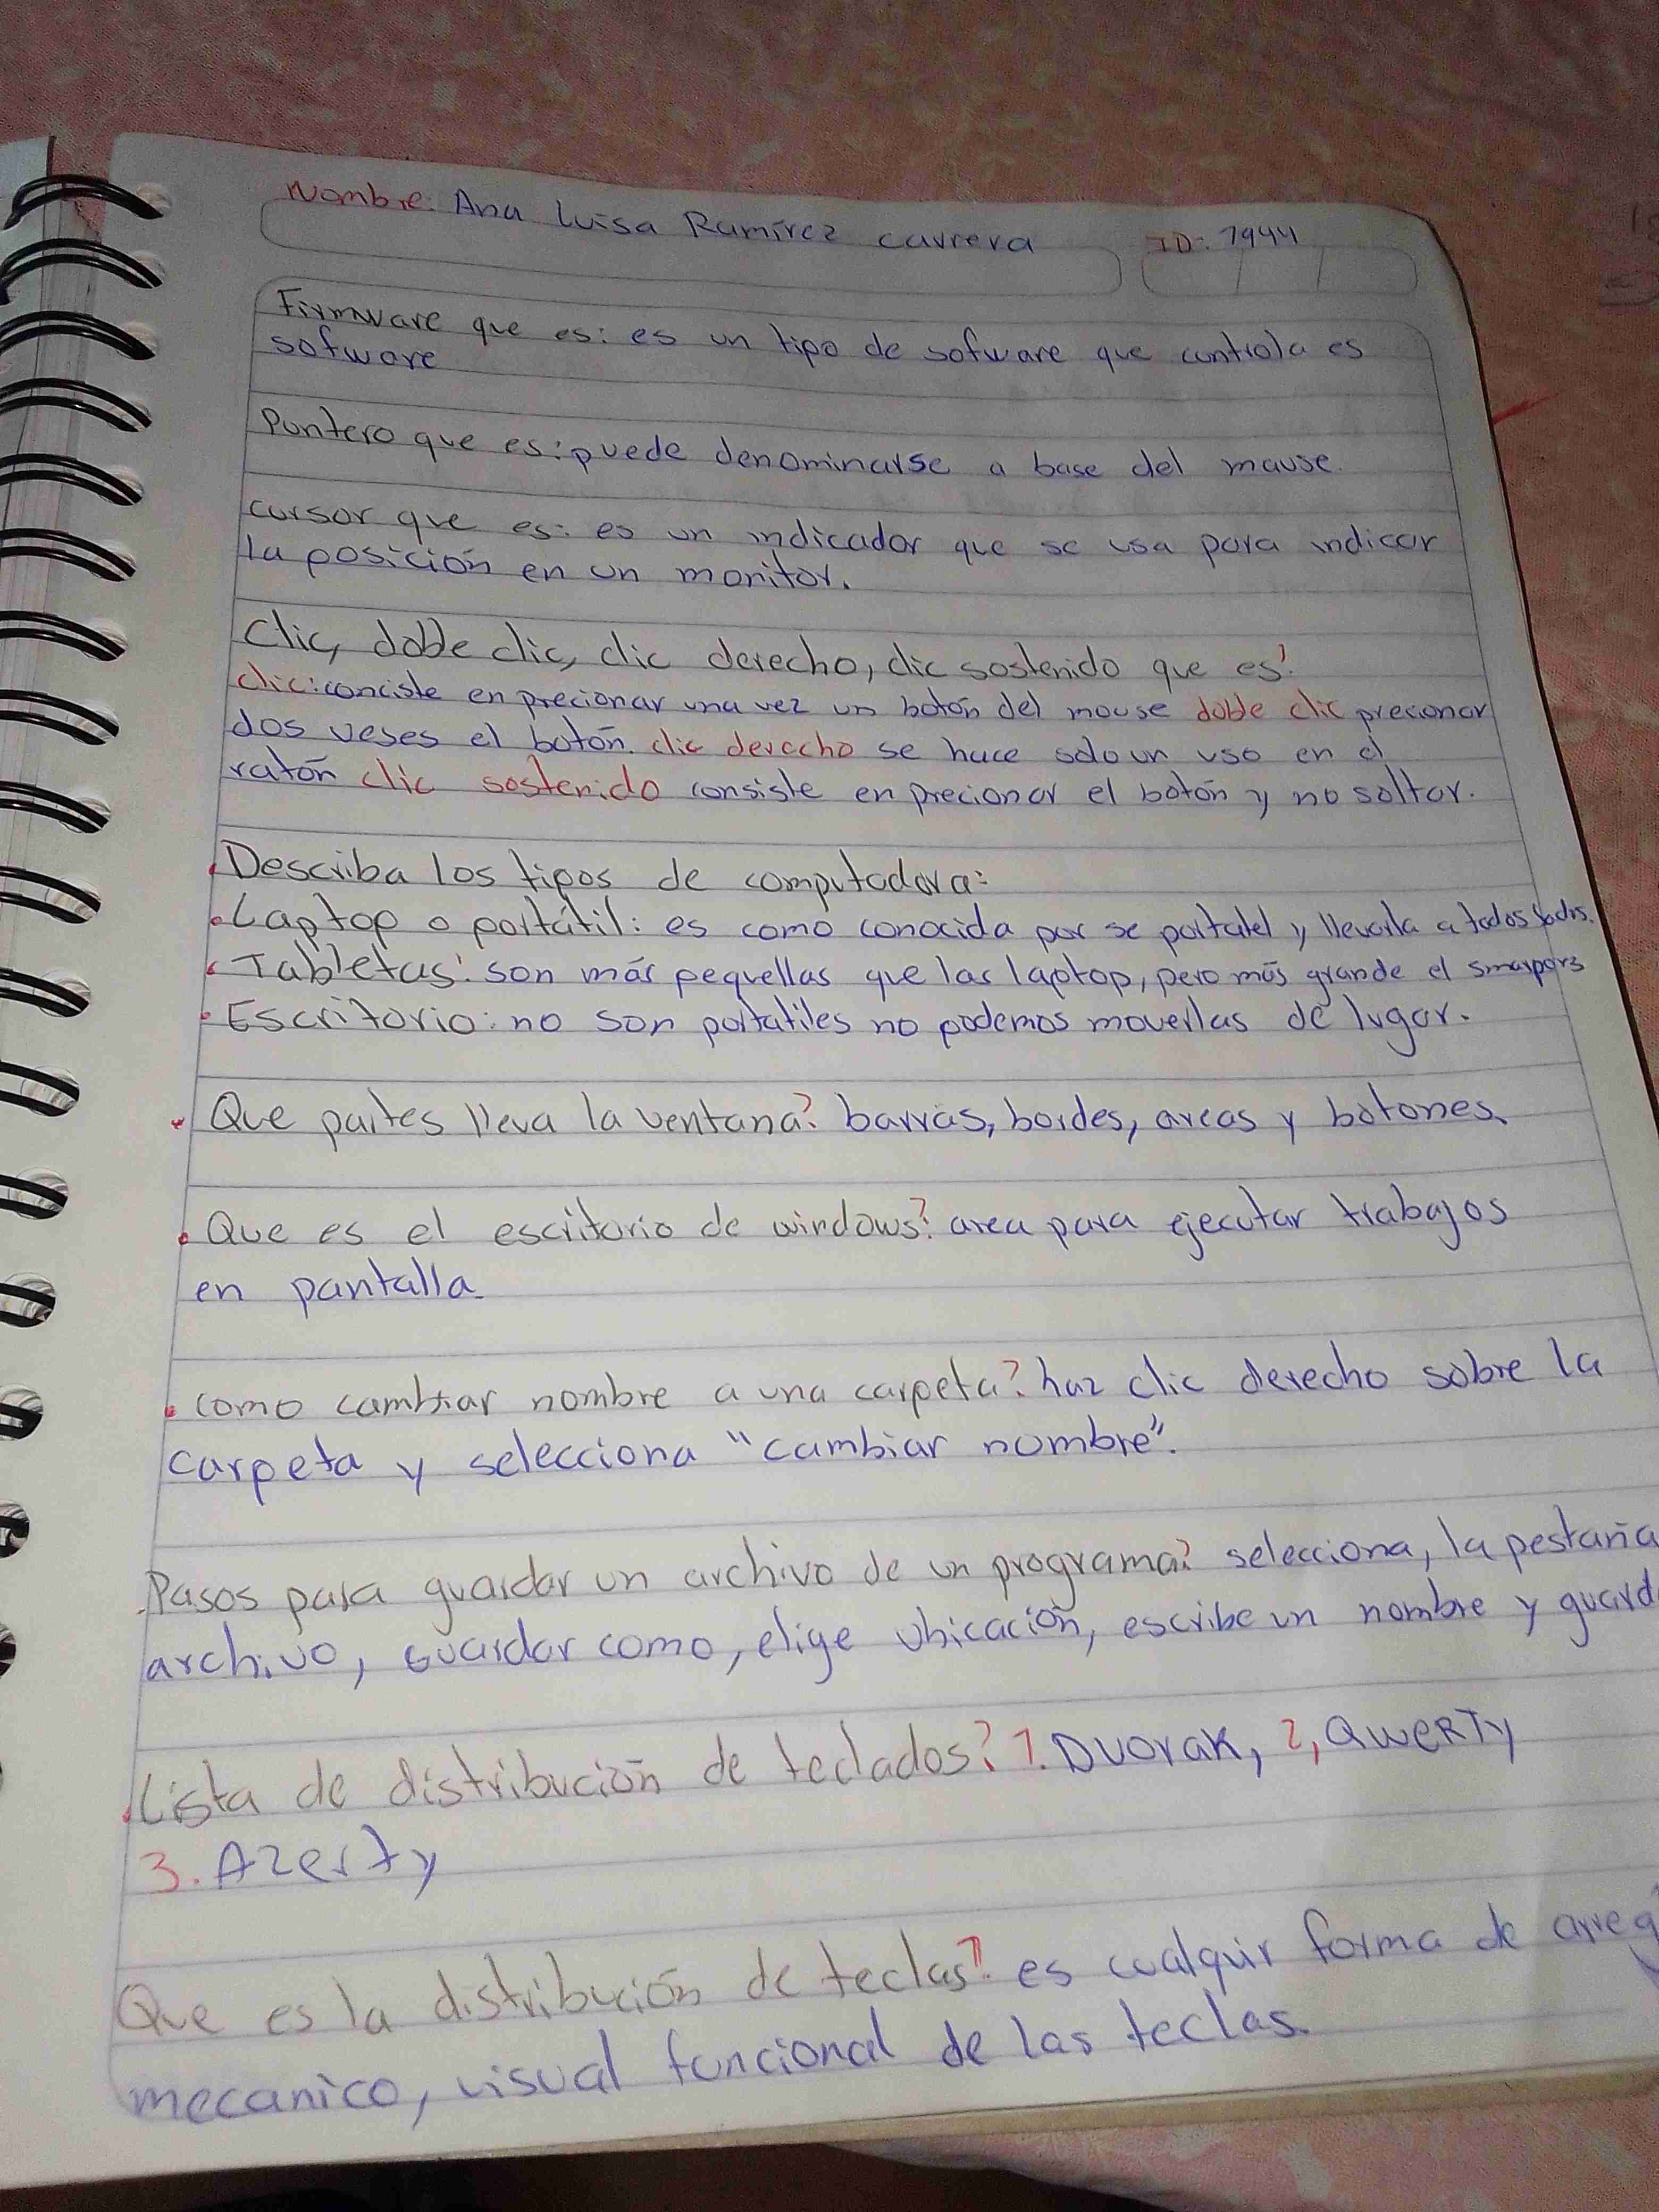 Nombre: Ana Luisa Ramírez carrera ID: 1944
Firmware que es: es un tipo de sofware que controla es
sofware
Puntero que es: puede denominarse a base del mause.
cursor que es: es un indicador que se usa para indicar
la posición en un monitor.
Clic, doble clic, clic derecho, clic sostenido que es?
clic: conciste en precionar una vez un botón del mouse doble clic precionar
dos veses el botón. clic derecho se hace solo un uso en el
ratón clic sostenido consiste en precionar el botón y no soltar.
Describa los tipos de computadora:
Laptop o portátil: es como conocida por se portatel y llevarla a todos lados.
Tabletas: son más pequellas que las laptop, pero más grande el smarpors
Escritorio: no son portatiles no podemos moverlas de lugar.
Que partes lleva la ventana? barras, bordes, areas y botones.
Que es el escritorio de windows? area para ejecutar trabajos
en pantalla.
como cambiar nombre a una carpeta? haz clic derecho sobre la
carpeta y selecciona "cambiar nombre".
Pasos para guardar un archivo de un programa? selecciona, la pestaña
archivo, Guardar como, elige ubicación, escribe un nombre y guard
Lista de distribución de teclados? 1. Dvorak, 2, QWERTY
3. Azerty
Que es la distribución de teclas? es cualquir forma de arreg
mecanico, visual funcional de las teclas.